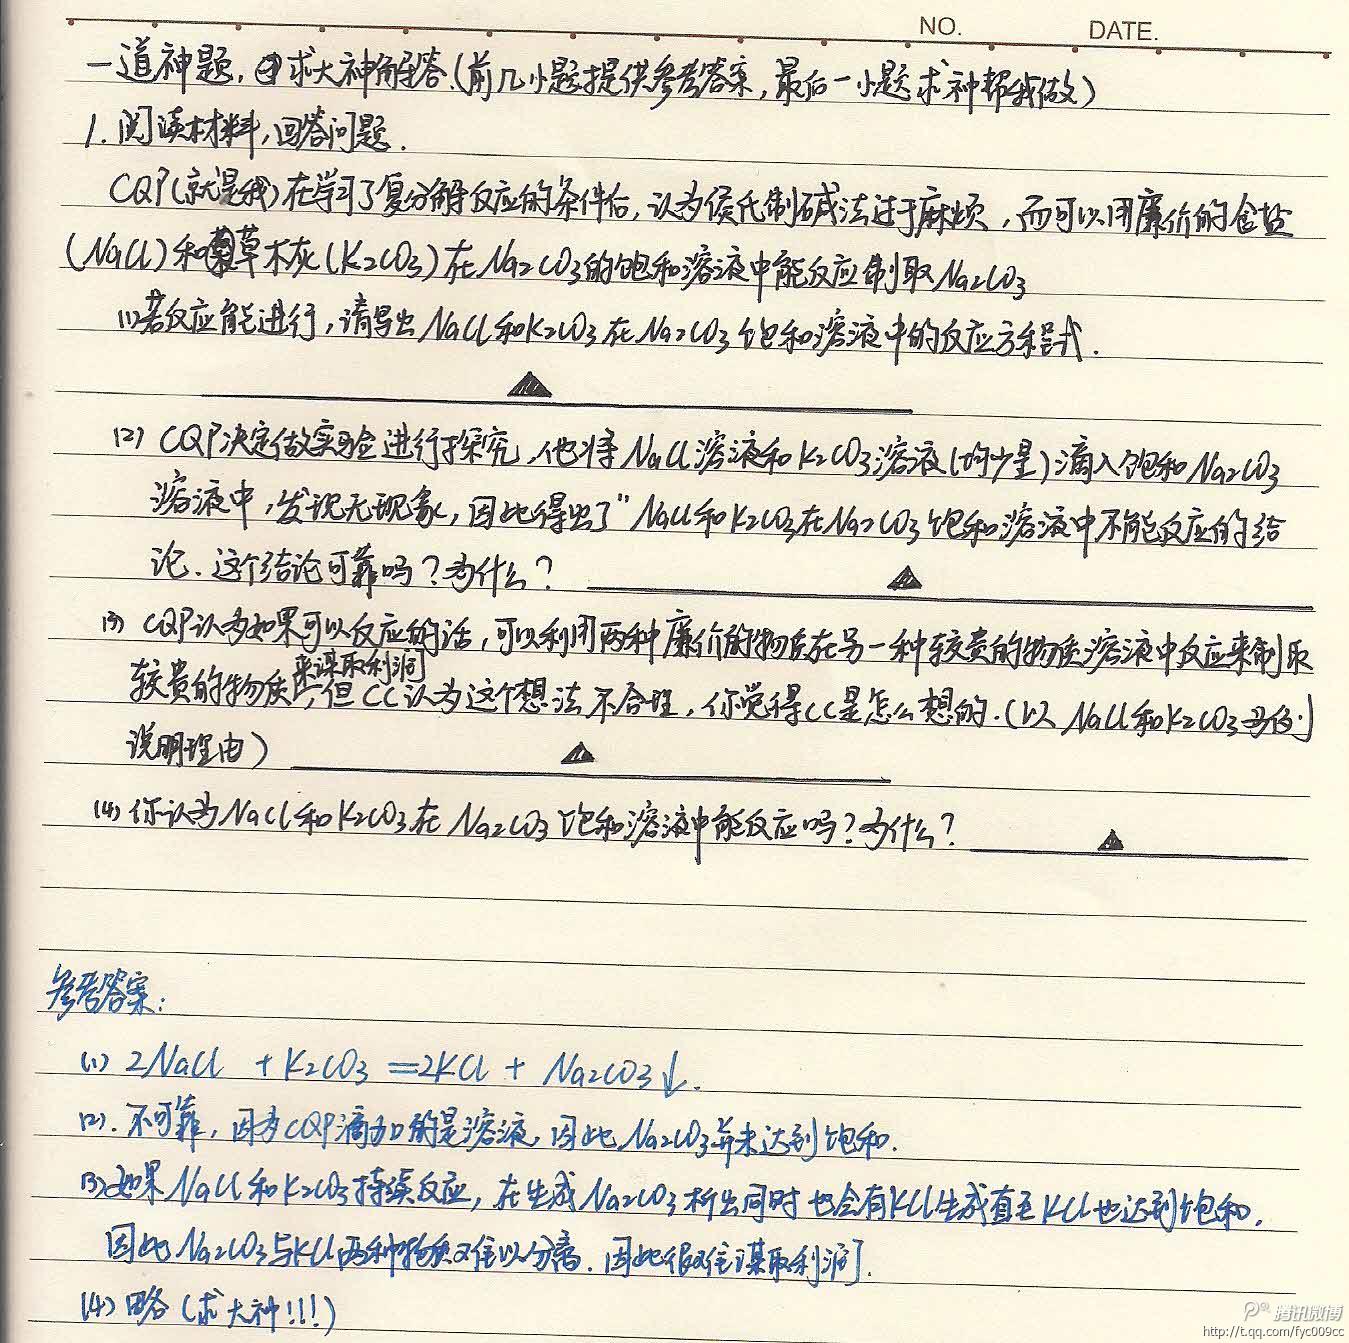 NO. DATE.
一道神题,求大神解答.(前几小题提供参考答案,最后一小题求神帮我做)
1.阅读材料,回答问题.
CQP(就是我)在学习了复分解反应的条件后,认为侯氏制碱法过于麻烦,而可以用廉价的食盐
(NaCl)和草木灰(K2CO3)在Na2CO3的饱和溶液中能反应制取Na2CO3
(1)若反应能进行,请写出NaCl和K2CO3在Na2CO3饱和溶液中的反应方程式.
(2) CQP决定做实验进行探究,他将NaCl溶液和K2CO3溶液(均少量)滴入饱和Na2CO3
溶液中,发现无现象,因此得出了"NaCl和K2CO3在Na2CO3饱和溶液中不能反应的结
论.这个结论可靠吗?为什么?
(3) CQP认为如果可以反应的话,可以利用两种廉价的物质在另一种较贵的物质溶液中反应来制取
较贵的物质来谋取利润,但CC认为这个想法不合理,你觉得CC是怎么想的.(以NaCl和K2CO3为例
说明理由)
(4)你认为NaCl和K2CO3在Na2CO3饱和溶液中能反应吗?为什么?
参考答案:
(1) 2NaCl + K2CO3 =2KCl + Na2CO3↓.
(2).不可靠,因为CQP滴加的是溶液,因此Na2CO3并未达到饱和.
(3)如果NaCl和K2CO3持续反应,在生成Na2CO3析出同时也会有KCl生成直至KCl也达到饱和.
因此Na2CO3与KCl两种物质难以分离.因此很难谋取利润.
(4)略(求大神!!!)
腾讯微博
http://t.qq.com/fyc009cc